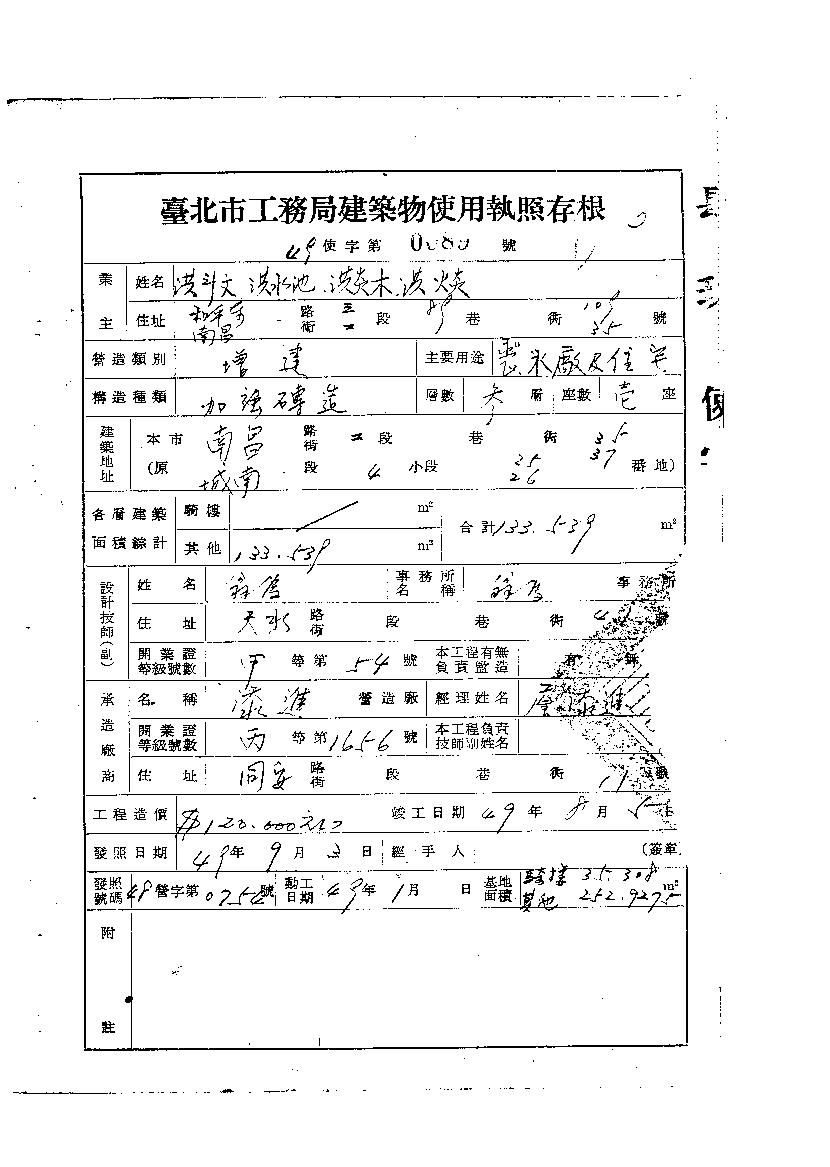 臺北市工務局建築物使用執照存根
49 使字第 號
業主 姓名 洪斗文 洪水池 洪炎木 洪
住址 和平東 南昌 路街 三 二 段 巷 衖 109 35 號
營造類別 增建 主要用途 製氷廠及住宅
構造種類 加強磚造 層數 參 層 座數 壱 座
建築地址 本市 南昌 路街 二 段 巷 衖 35 37
(原 城南 段 4 小段 25 26 番地)
各層建築面積綜計 騎樓 m² 合計 133.539 m²
其他 133.539 m²
設計技師(副) 姓名 事務所名稱 事務所
住址 天水 路街 段 巷 衖 號
開業證等級號數 甲 等第 54 號 本工程有無負責監造 有 無
承造廠商 名稱 泰進 營造廠 經理姓名 泰進
開業證等級號數 丙 等第 1656 號 本工程負責技師副姓名
住址 同安 路街 段 巷 衖 號
工程造價 $120.000 竣工日期 49 年 8 月 5
發照日期 49 年 9 月 日 經手人 (簽章)
發照號碼 48 營字第 號 動工日期 49 年 1 月 日 基地面積 騎樓 35.308 其他 252.9275 m²
附註